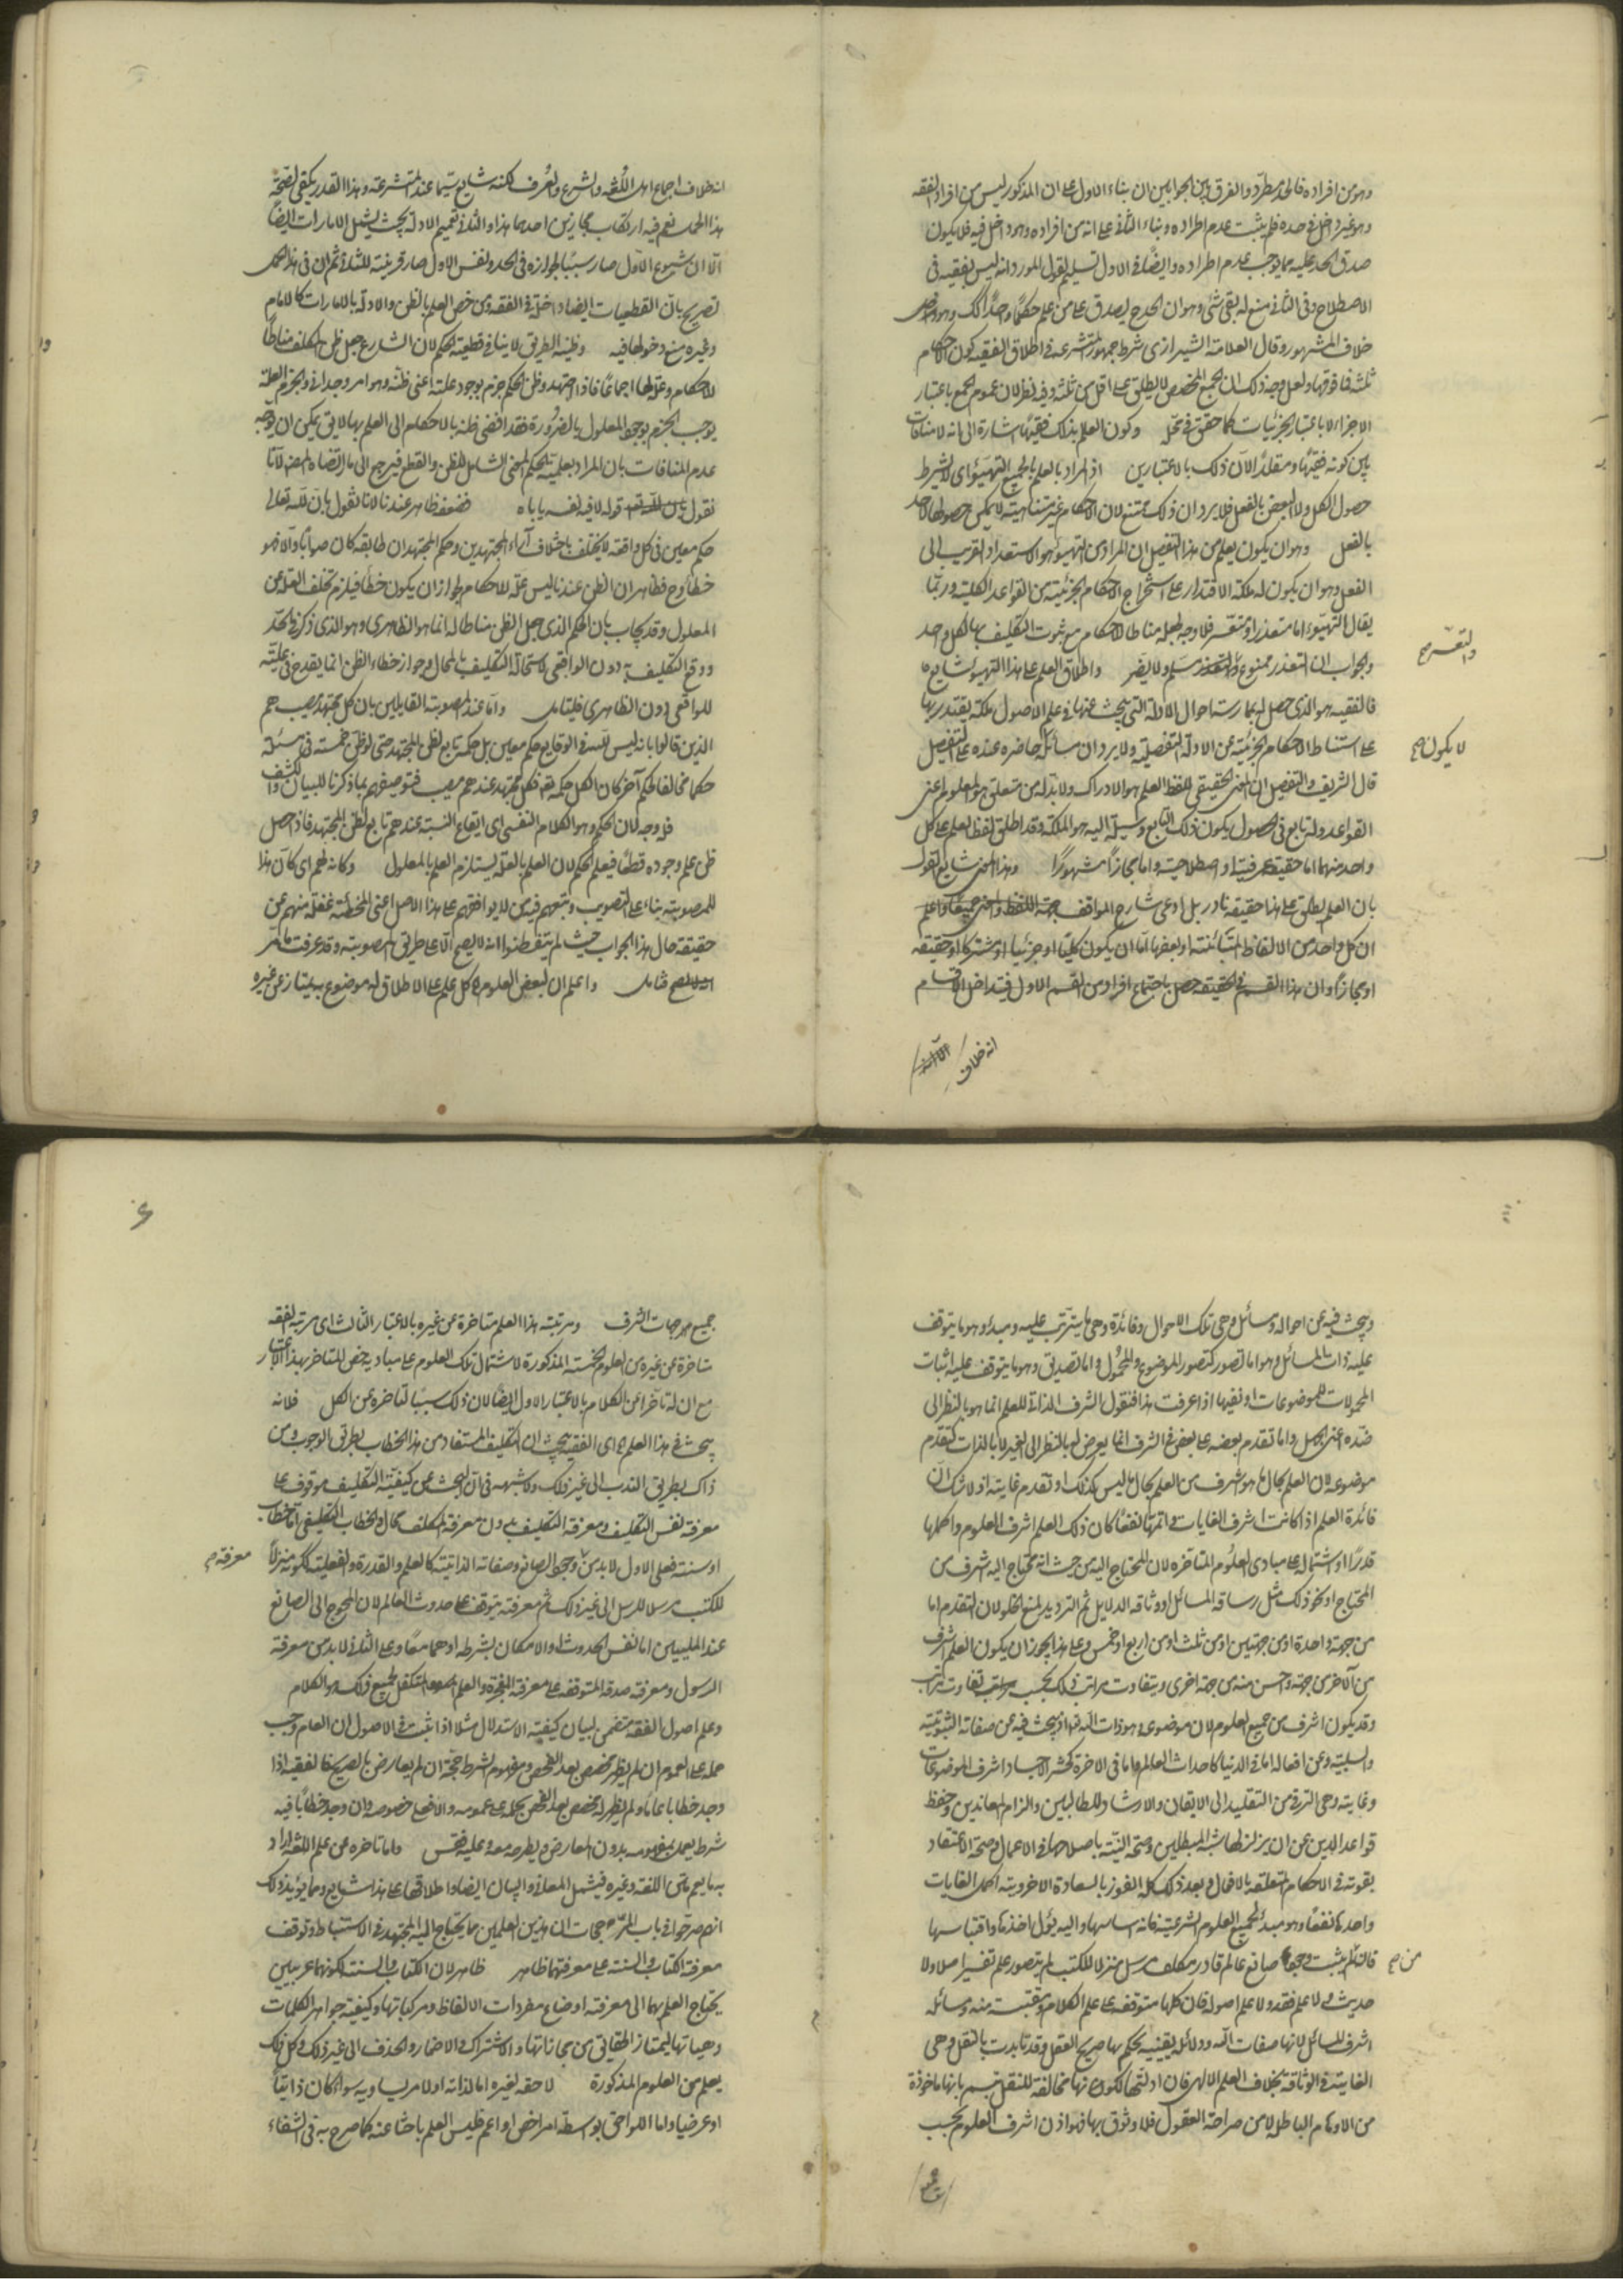 وهو من افراده فالحد مطرد والفرق بين الجوابين ان بناء الاول على ان المذكور ليس من افراد الفقه
وهو غير داخل في حده فلم يثبت عدم اطراده وبناء الثاني على انه من افراده وهو داخل فيه فلا يكون
صدق الحد عليه مما يوجب عدم اطراده وايضا في الاول تسليم لقول المورد انه ليس بفقيه في
الاصطلاح وفي الثاني منع له بقى شئ وهو ان الحد ح يصدق على من علم حكما واحدا كك وهو
خلاف المشهور وقال العلامة الشيرازى شرط جمهور المتشرعة في اطلاق الفقيه كون الاحكام
ثلثة فما فوقها ولعل وجه ذلك ان الجمع المخصص لا يطلق على اقل من ثلثة وفيه نظر لان عموم الجمع باعتبار
الاجزاء لا باعتبار الجزئيات كما حقق في محله وكون العلم بذلك فقيها اشارة الى انه لا منافات
بين كونه فقيها ومقلدا لان ذلك بالاعتبارين اذ المراد بالعلم بالجميع التهيؤ اى لا يشرط
حصول الكل ولا البعض بالفعل فلا يرد ان ذلك ممتنع لان الاحكام غير متناهية لا يمكن حصولها لاحد
بالفعل وهو ان يكون يعلم من هذا التفصيل ان المراد من التهيؤ هو الاستعداد القريب الى
الفعل وهو ان يكون له ملكة الاقتدار على استخراج الاحكام الجزئية من القواعد الكلية وربما
يقال التهيؤ اما متعذر او متعسر فلا وجه لجعله مناطا للاحكام مع ثبوت التكليف بها لكل واحد
والجواب ان التعذر ممنوع والتعذر مسلم ولا يضر واطلاق العلم على هذا التهيؤ شايع
والتعسر صح
فالفقيه هو الذى حصل له بممارسة احوال الادلة التى يبحث عنها في علم الاصول ملكة يقتدر بها
على استنباط الاحكام الجزئية عن الادلة التفصيلية ولا يرد ان مسائله حاضرة عنده على التفصيل
لا يكون صح
قال الشريف والتفصيل ان المعنى الحقيقى للفظ العلم هو الادراك ولا بد له من متعلق هو المعلوم اعنى
القواعد وله تابع في الحصول يكون ذلك التابع وسيلة اليه هو الملكة وقد اطلق لفظ العلم على كل
واحد منهما اما حقيقة عرفية او اصطلاحية واما مجازا مشهورا وهذا المعنى شايع القول
بان العلم يطلق على هذا حقيقة نادر بل ادعى شارح المواقف
ان كل واحد من الالفاظ المتبائنة او بعضها اما ان يكون كليا او جزئيا او مشتركا او حقيقة
او مجازا وان هذا القسم في الحقيقة حصل باجتماع افراد من القسم الاول فيتداخل الاقسام
انه خلاف
انه خلاف اجماع اهل اللغة والشرع والعرف لكنه شايع سيما عند المتشرعة وهذا القدر يكفى لصحة
هذا الحد نعم فيه ارتكاب مجازين احدهما هذا والثانى تعميم الادلة بحيث يشمل الامارات ايضا
الا ان شيوع الاول صار سببا لجوازه في الحد ونفس الاول صار قرينة للثانى ثم ان في هذا الحمل
تصريح بان القطعيات ايضا داخلة في الفقه ومن خص العلم بالظن والادلة بالامارات كالامام
وغيره منع دخولها فيه وظنية الطريق لا ينافى قطعية الحكم لان الشارع جعل ظن المكلف مناطا
للاحكام وعلة لها اجماعا فاذا اجتهد وظن الحكم جزم بوجود علته اعنى ظنه وهو امر وجدانى والجزم بالعلة
يوجب الجزم بوجود المعلول بالضرورة فقد افضى ظنه بالاحكام الى العلم بها لا يق يمكن ان يوجه
عدم المنافات بان المراد بعلمية الحكم المعنى الشامل للظن والقطع فيرجع الى ما ارتضاه المص لانا
نقول قوله لا فيه نفسه ياباه فضعفه ظاهر عندنا لانا نقول بان لله تعالى
حكم معين في كل واقعة لا يختلف باختلاف آراء المجتهدين وحكم المجتهد ان طابقه كان صوابا والا فهو
خطأ وح فظاهر ان الظن عندنا ليس علة للاحكام لجواز ان يكون خطأ فيلزم تخلف العلة عن
المعلول وقد يجاب بان الحكم الذى جعل الظن مناطا له انما هو الظاهرى وهو الذى ذكر في الحد
ووقع التكليف به دون الواقعى لاستحالة التكليف بالمحال وجواز خطاء الظن انما يقدح في علية
للواقعى دون الظاهرى فليتامل واما عند المصوبة القايلين بان كل مجتهد مصيب هم
الذين قالوا بانه ليس لله في الوقايع حكم معين بل حكمه تابع لظن المجتهد حتى لو ظن خمسة في مسئلة
حكما مخالفا لحكم آخر كان الكل حكمه تعه فكل مجتهد عندهم مصيب فتوصيفهم بما ذكرنا للبيان والكشف
فله وجه لان الحكم وهو الكلام النفسى اى ايقاع النسبة عندهم تابع لظن المجتهد فاذا حصل
ظن علم وجوده قطعا فيعلم الحكم لان العلم بالعلة يستلزم العلم بالمعلول وكانه لهم اى كان هذا
للمصوبة بناء على التصويب وتبعهم فيه من لا يوافقهم على هذا الاصل اعنى المخطئة غفلة منهم عن
حقيقة حال هذا الجواب حيث لم يتفطنوا انه لا يصح الا على طريق المصوبة وقد عرفت
تامل واعلم ان لبعض العلوم كل علم على الاطلاق له موضوع به يمتاز عن غيره
ويبحث فيه عن احواله ومسائل وهى تلك الاحوال وفائدة وهى ما يترتب عليه ومبدء وهو ما يتوقف
عليه ذات المسائل وهو اما تصور كتصور الموضوع والمحمول واما تصديق وهو ما يتوقف عليه اثبات
المحمولات للموضوعات او نفيها اذا عرفت هذا فنقول الشرف الذاتى للعلم انما هو بالنظر الى
ضده اعنى الجهل واما تقدم بعضه على بعض في الشرف انما يعرض له بالنظر الى الغير لا بالذات كتقدم
موضوعه لان العلم بحال ما هو اشرف من العلم بحال ما ليس كذلك او تقدم غايته اذ لا شك ان
فائدة العلم اذا كانت اشرف الغايات واتمها نفعا كان ذلك العلم اشرف العلوم واكملها
قدرا او اشتماله على مبادى العلوم المتاخرة لان المحتاج اليه من حيث انه محتاج اليه اشرف من
المحتاج او نحو ذلك مثل رساقة المسائل او وثاقة الدلايل ثم الترديد لمنع الخلو لان التقدم اما
من جهة واحدة او من جهتين او من ثلث او من اربع او خمس وعلى هذا يجوز ان يكون العلم اشرف
من آخر من جهة واخس منه من جهة اخرى ويتفاوت مراتب ذلك بحسب تفاوت مراتب
وقد يكون اشرف من جميع العلوم لان موضوعه وهو ذات اله تعا اذ يبحث فيه عن صفاته الثبوتية
والسلبية وعن افعاله اما في الدنيا كاحداث العالم واما في الاخرة كحشر الاجساد اشرف الموضوعات
وغايته وهى الترقى من التقليد الى الايقان والارشاد للطالبين والزام المعاندين وحفظ
قواعد الدين عن ان يزلزلها شبه المبطلين وصحة النية باصلاحها في الاعمال وصحة الاعتقاد
بقوته في الاحكام المتعلقة بالافعال وبعد ذلك كله الفوز بالسعادة الاخروية اكمل الغايات
واحدها نفعا وهو مبدء لجميع العلوم الشرعية فانه اساسها واليه يؤل اخذها واقتباسها
فان لم يثبت وجود صانع عالم قادر مكلف مرسل منزل للكتب لم يتصور علم تفسير اصلا ولا
من صح
حديث ولا علم فقه ولا علم اصوله فان كلها متوقفة على علم الكلام ومقتبسة منه ومسائله
اشرف المسائل لانها صفات اله ودلائله يقينية يحكم بها صريح العقل وقد تايدت بالنقل وهى
الغاية في الوثاقة بخلاف العلم الالهى فان ادلتها لكونها مخالفة للنقل بانها ماخوذة
من الاوهام الباطلة لا من صراحة العقول فلا وثوق بها فهو اذن اشرف العلوم بحسب
جميع
٤
جميع جهات الشرف ومرتبة هذا العلم متاخرة عن غيره بالاعتبار الثالث اى مرتبة الفقه
متاخرة عن غيره من العلوم الخمسة المذكورة لاشتمال تلك العلوم على مباديه خص المتاخر بهذا الاعتبار
مع ان له تاخرا عن الكلام بالاعتبار الاول ايضا لان ذلك سببا لتاخره عن الكل فلانه
يبحث في هذا العلم اى الفقيه يبحث ان التكليف المستفاد من هذا الخطاب بطريق الوجوب ومن
ذاك بطريق الندب الى غير ذلك ولا شبهه في ان البحث عن كيفية التكليف موقوف على
معرفة نفس التكليف ومعرفة التكليف بدون معرفة المكلف محال والخطاب التكليفى اما خطاب
او سنة فعلى الاول لا بد من وجود الصانع وصفاته الذاتية كالعلم والقدرة والفعلية ككونه منزلا
معرفة صح
للكتب مرسلا للرسل الى غير ذلك ثم معرفته يتوقف على حدوث العالم لان المحوج الى الصانع
عند المليين اما نفس الحدوث او الامكان بشرطه او هما معا وعلى الثانى لا بد من معرفة
الرسول ومعرفة صدقه المتوقفة على معرفة المعجزة والعلم المتكفل لجميع ذلك هو الكلام
وعلم اصول الفقه متضمن لبيان كيفية الاستدلال مثلا اذا ثبت في الاصول ان العام وجب
حمله على العموم ان لم يظهر مخصص بعد الفحص ومفهوم الشرط حجة ان لم يعارض بالصريح فالفقيه اذا
وجد خطابا عاما ولم يظهر له مخصص بعد الفحص يحمله على عمومه والا فعلى خصوصه وان وجد خطابا فيه
شرط يعمل بمفهومه بدون المعارض ويطرحه معه وعليه فقس واما تاخره عن علم اللغة اراد
به ما يعم متن اللغة وغيره فيشمل المعانى والبيان ايضا واطلاقها على هذا شايع ومما يؤيد ذلك
انهم صرحوا في باب المرجحات ان هذين العلمين مما يحتاج اليه المجتهد في الاستنباط وتوقف
معرفة الكتاب والسنة على معرفتها ظاهر ظاهر لان الكتاب والسنة لكونهما عربيين
يحتاج العلم بهما الى معرفة اوضاع مفردات الالفاظ ومركباتها وكيفية جواهر الكلمات
وهيئاتها ليمتاز الحقايق من مجازاتها والاشتراك والاضمار والحذف الى غير ذلك وكل ذلك
يعلم من العلوم المذكورة لاحقة لغيره اما لذاته او لامر يساويه سواء كان ذاتيا
او عرضيا واما اللواحق بواسطة امر اخص او اعم فليس العلم باحثا عنه كما صرح به في الشفاء